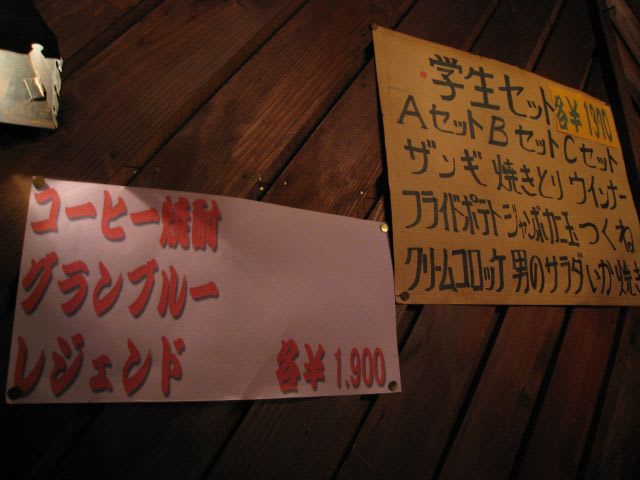 コーヒー焼酎
グランブルー
レジェンド 各¥1,900
学生セット 各¥1,900
Aセット Bセット Cセット
ザンギ 焼きとり ウインナー
フライドポテト ジャンボカニ玉 つくね
クリームコロッケ 男のサラダ いか焼き